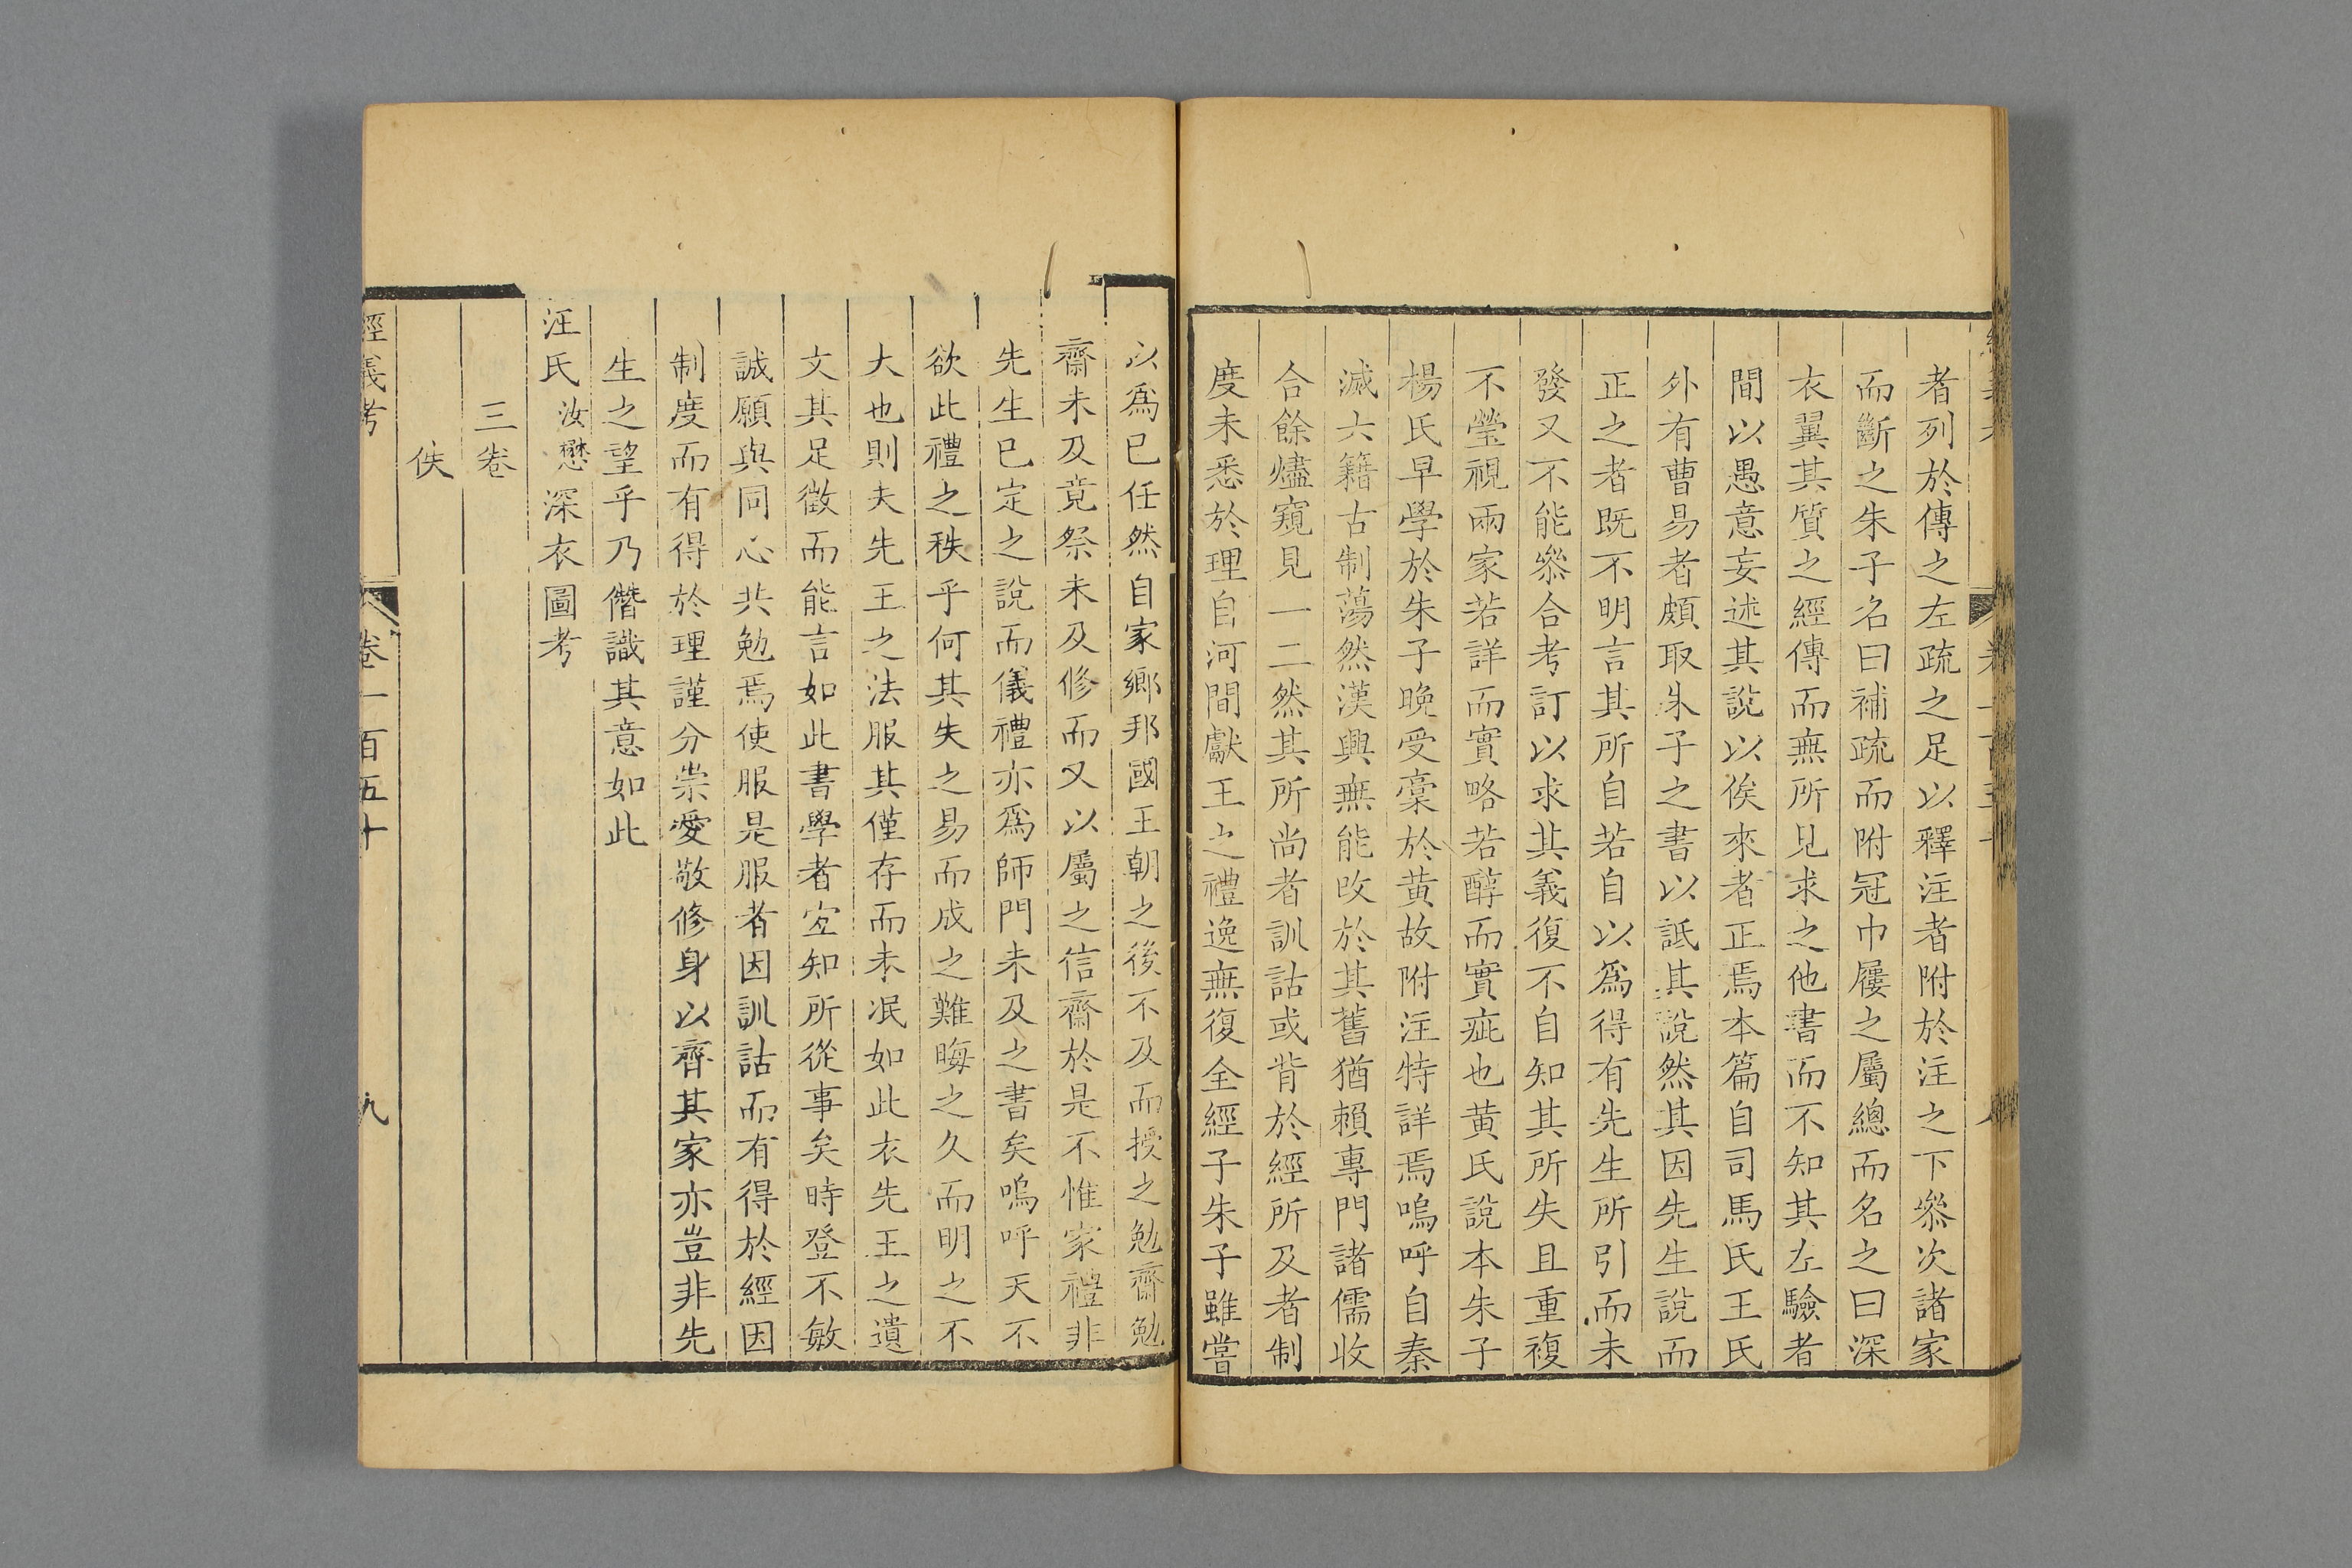 者列於傳之左疏之足以釋注者附於注之下叅次諸家
而斷之朱子名曰補疏而附冠巾屨之屬總而名之曰深
衣翼其質之經傳而無所見求之他書而不知其左驗者
間以愚意妄述其說以俟來者正焉本篇自司馬氏王氏
外有曹易者頗取朱子之書以詆其說然其因先生說而
正之者既不明言其所自若自以爲得有先生所引而未
發又不能叅合考訂以求其義復不自知其所失且重複
不瑩視兩家若詳而實略若醇而實疵也黃氏說本朱子
楊氏早學於朱子晚受稾於黃故附注特詳焉嗚呼自秦
滅六籍古制蕩然漢興無能攺於其舊猶賴專門諸儒收
合餘燼窺見一二然其所尚者訓詁或背於經所及者制
度未悉於理自河間獻王之禮逸無復全經子朱子雖嘗
以爲已任然自家鄉邦國王朝之後不及而授之勉齋勉
齋未及竟祭未及修而又以屬之信齋於是不惟家禮非
先生已定之說而儀禮亦爲師門未及之書矣嗚呼天不
欲此禮之秩乎何其失之易而成之難晦之久而明之不
大也則夫先王之法服其僅存而未泯如此衣先王之遺
文其足徵而能言如此書學者宐知所從事矣時登不敏
誠願與同心共勉焉使服是服者因訓詁而有得於經因
制度而有得於理謹分崇愛敬修身以齊其家亦豈非先
生之望乎乃僭識其意如此
汪氏汝懋深衣圖考
三卷
佚
經義考 卷一百五十 九